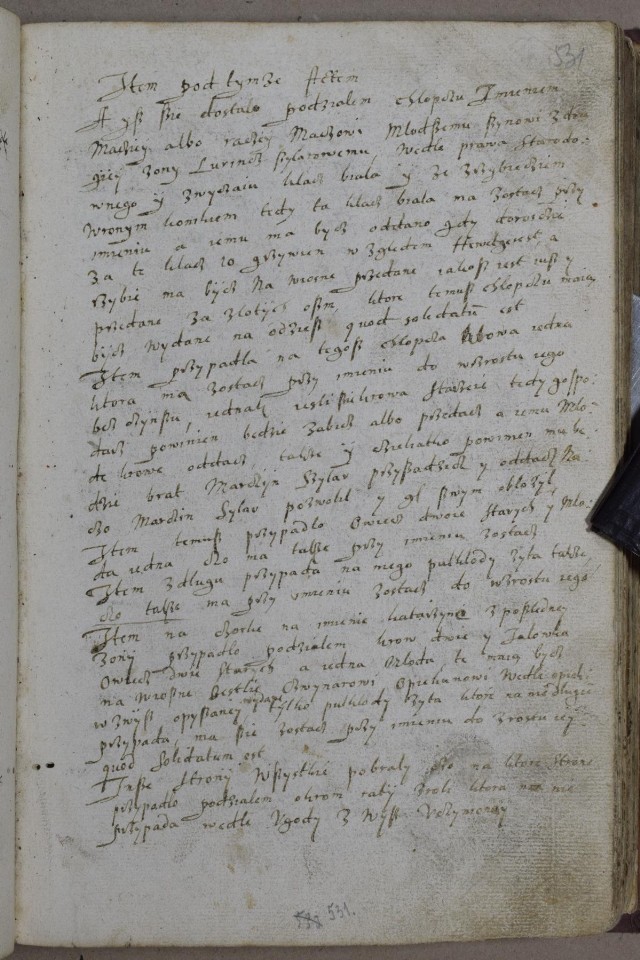 531
Item pod tymze Aktem
A ysz sie dostalo podzialem chlopczu Imieniem
Macziey albo raczey Maczkowi Mlodszemu synowi zdru
giey zony Szylarowemu wedle prawa Starodo:
wnego y zwyczaiu klacz biala y ze zrzybieciem
wronym tedy ta klacz biala ma zostacz przy
imieniu a iemu ma bycz oddano gdy dorosczie
za te klacz 10 grzywien wzgledem a
zrzybie ma bycz na wiosne przedane iakosz iest iusz y
przedane za zlotych osm, ktore temusz chlopczu maią
bycz wydane na odziesz quod solidatum est
Item przypadla na tegosz chlopcza krowa iedna
ktora ma zostacz przy imieniu do wzrostu iego
bez czynszu, iednak iesli sie krowa starzeie tedy gospo:
darz powinien bedzie zabicz albo przedacz a iemu mlo:
de krowe oddacz, takze y cielatko powinien mu be
dzie brat Marczyn Szylar przysadzicz y oddacz Na
czo Marczin Sylar pozwolil y gl swym oblozyl
Item temusz przypadlo Owiecz dwoie starych y mlo:
da iedna czo ma takze przy imieniu zostacz
Item z dlugu przypada na niego pulklody zyta takze,
czo takze ma przy imieniu zostacz do wzrostu iego
Item na czorke na imie katarzyna z posledney
zony przypadlo podzialem krow dwie y Ialowka
Owiecz dwie starych a iedna mloda, te maią bycz
na wiosne wydane Opiekunowi wedle opieki
wzwysz opysaney tylko pulklody zyta ktore na nie z dlugu
przypada ma sie zostacz przy imieniu do zrostu iey
quod solidatum est
Insze strony wszystkie pobraly czo na ktore strone
przypadlo podzialem okrom raty z roli ktora na nie
przypada wedle Ugody z wysz uczynioney
531.